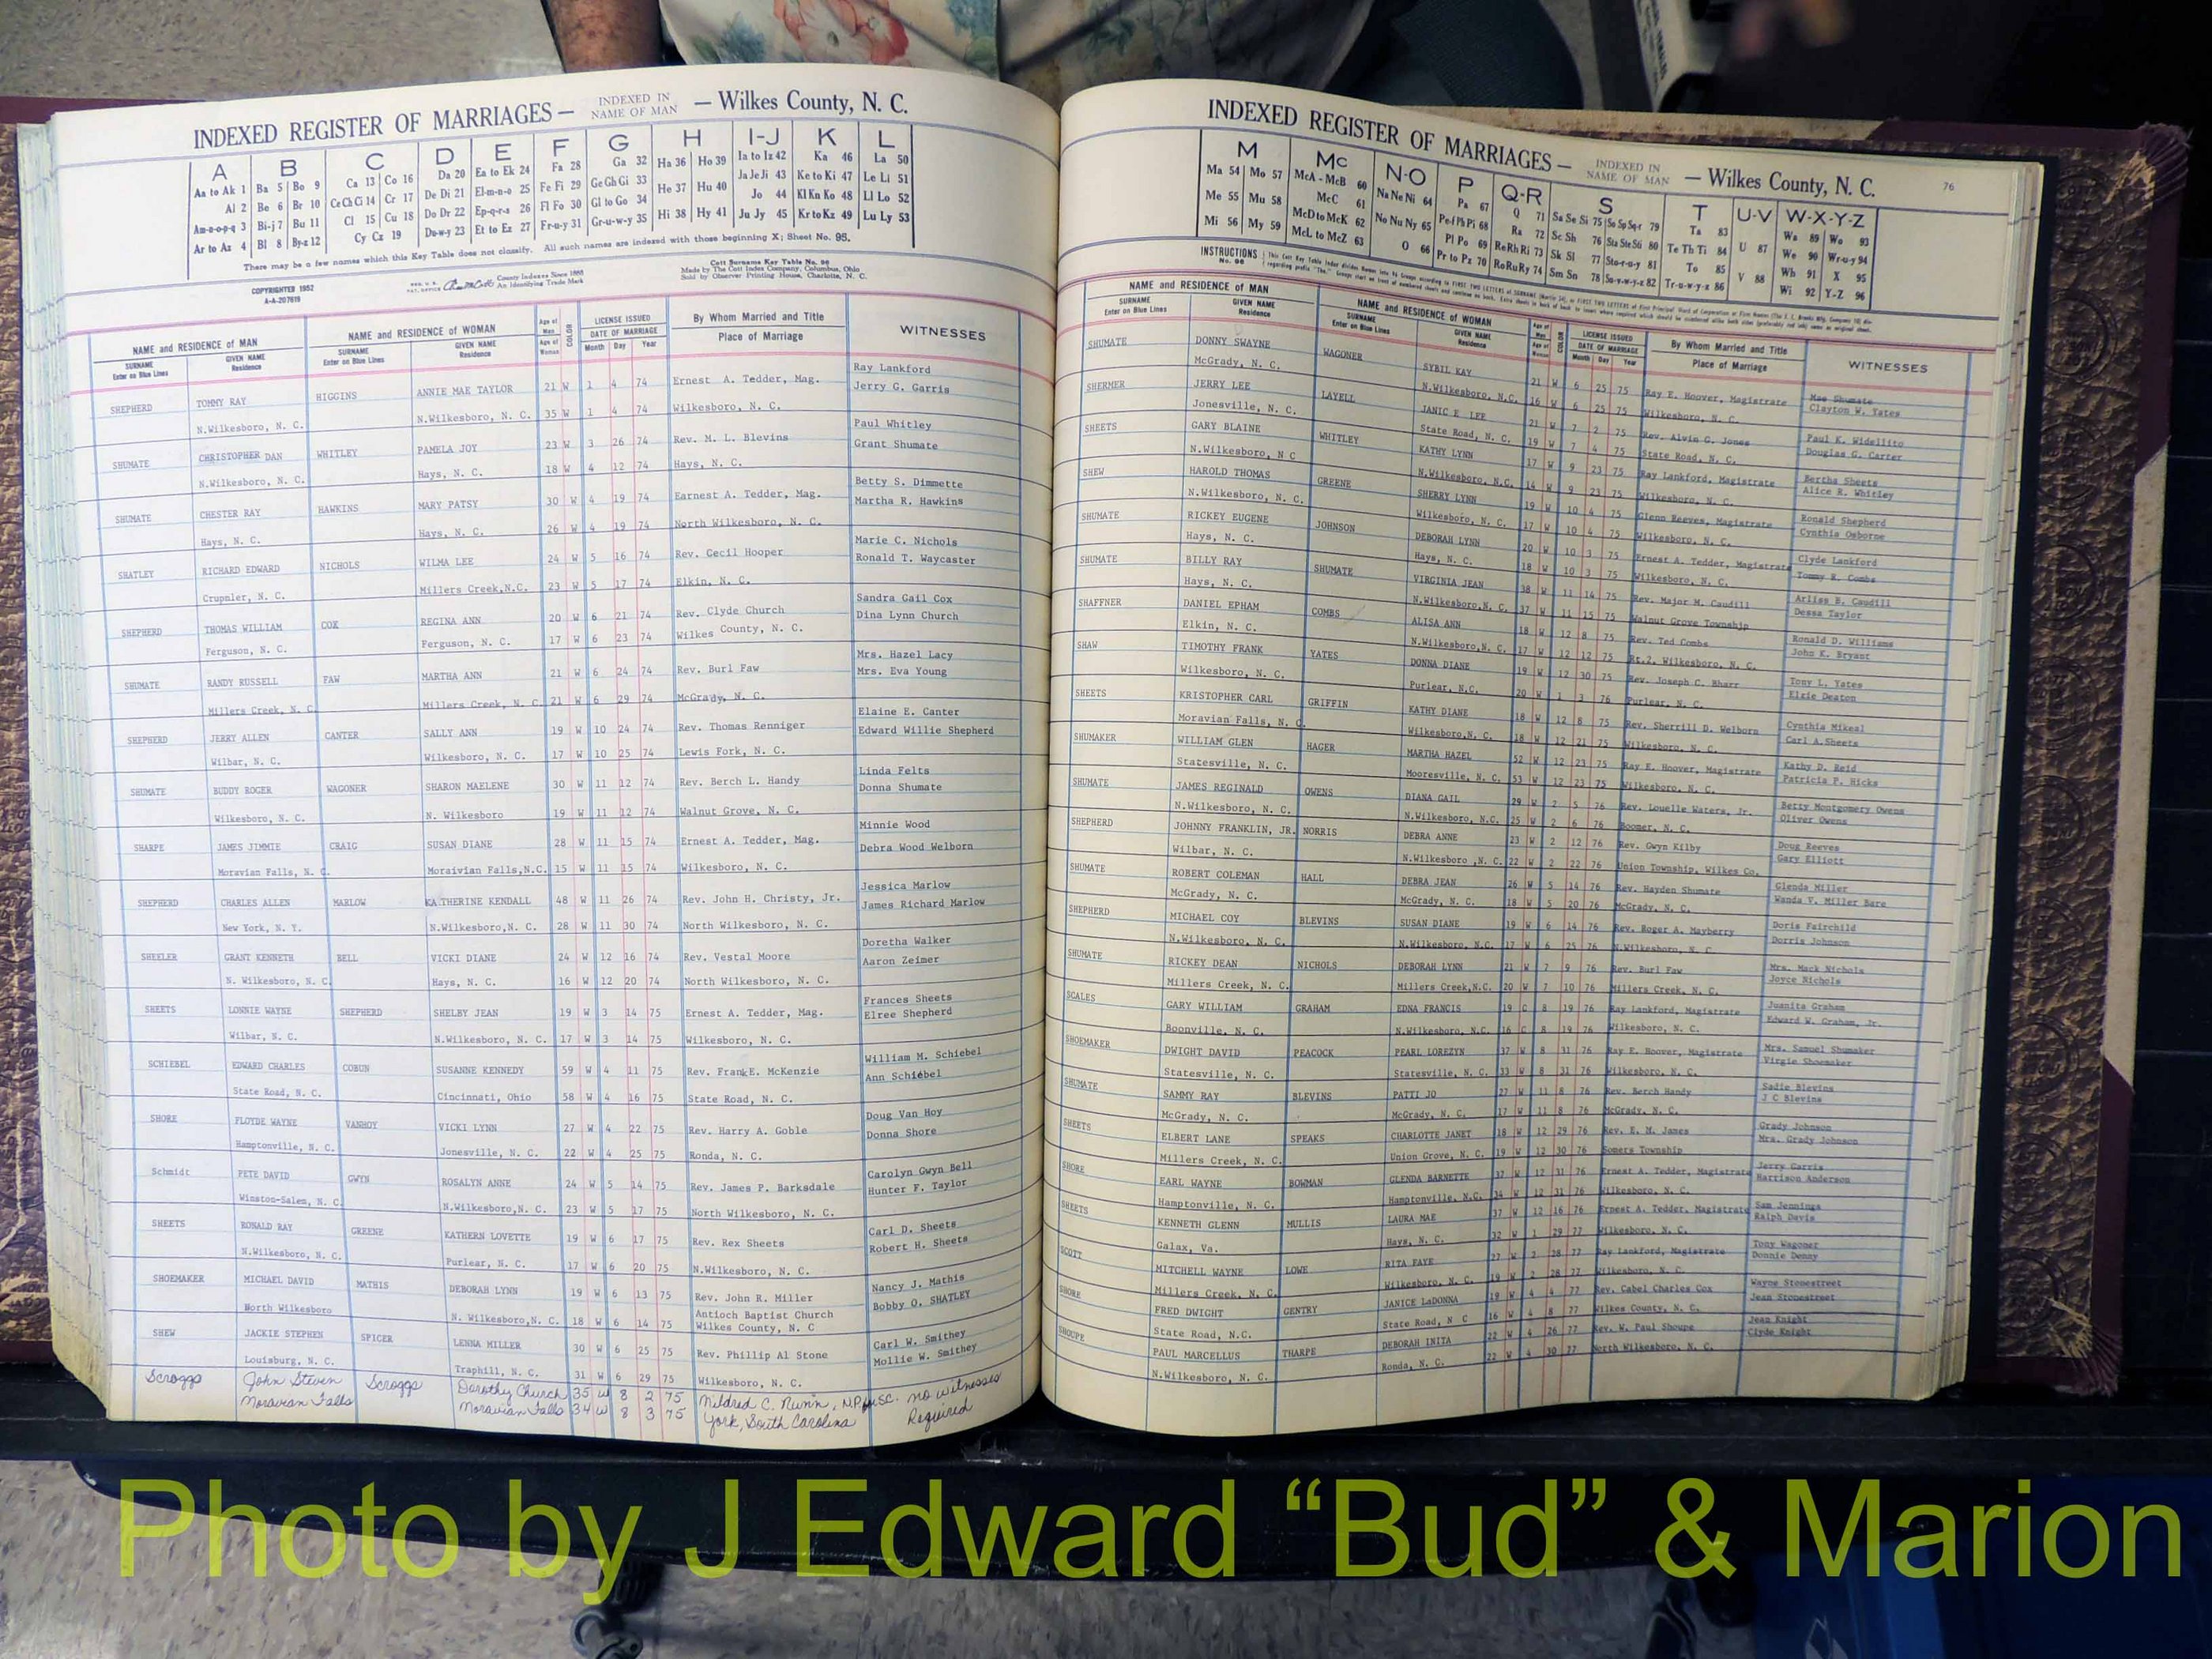 INDEXED REGISTER OF MARRIAGES — INDEXED IN NAME OF MAN — Wilkes County, N. C.
A B C D E F G H I-J K L
Aa to Ak 1 Ba 5 Bo 9 Ca 13 Co 16 Da 20 Ea to Ek 24 Fa 28 Ga 32 Ha 36 Ho 39 Ia to Iz 42 Ka 46 La 50
Al 2 Be 6 Br 10 Ce Ch Ci 14 Cr 17 De Di 21 El-m-n-o 25 Fe Fi 29 Ge Gh Gi 33 He 37 Hu 40 Ja Je Ji 43 Ke to Ki 47 Le Li 51
Am-n-o-p-q 3 Bi-j 7 Bu 11 Cl 15 Cu 18 Do Dr 22 Ep-q-r-s 26 Fl Fo 30 Gl to Go 34 Hi 38 Hy 41 Jo 44 Kl Kn Ko 48 Ll Lo 52
Ar to Az 4 Bl 8 By-z 12 Cy Cz 19 Du-w-y 23 Et to Ez 27 Fr-u-y 31 Gr-u-w-y 35 Ju Jy 45 Kr to Kz 49 Lu Ly 53
There may be a few names which this Key Table does not classify. All such names are indexed with those beginning X; Sheet No. 95.
COPYRIGHTED 1952
A-A-207619
County Indexes Since 1888
An Identifying Trade Mark
Cott Surname Key Table No. 96
Made by The Cott Index Company, Columbus, Ohio
Sold by Observer Printing House, Charlotte, N. C.
NAME and RESIDENCE of MAN NAME and RESIDENCE of WOMAN Age of Man Age of Woman COLOR LICENSE ISSUED DATE OF MARRIAGE Month Day Year By Whom Married and Title Place of Marriage WITNESSES
SURNAME Enter on Blue Lines GIVEN NAME Residence SURNAME Enter on Blue Lines GIVEN NAME Residence
SHEPHERD TOMMY RAY HIGGINS ANNIE MAE TAYLOR 21 W 1 4 74 Ernest A. Tedder, Mag. Ray Lankford
N.Wilkesboro, N. C. N.Wilkesboro, N. C. 35 W 1 4 74 Wilkesboro, N. C. Jerry G. Garris
SHUMATE CHRISTOPHER DAN WHITLEY PAMELA JOY 23 W 3 26 74 Rev. M. L. Blevins Paul Whitley
N.Wilkesboro, N. C. Hays, N. C. 18 W 4 12 74 Hays, N. C. Grant Shumate
SHUMATE CHESTER RAY HAWKINS MARY PATSY 30 W 4 19 74 Earnest A. Tedder, Mag. Betty S. Dimmette
Hays, N. C. Hays, N. C. 26 W 4 19 74 North Wilkesboro, N. C. Martha R. Hawkins
SHATLEY RICHARD EDWARD NICHOLS WILMA LEE 24 W 5 16 74 Rev. Cecil Hooper Marie C. Nichols
Crupnler, N. C. Millers Creek,N.C. 23 W 5 17 74 Elkin, N. C. Ronald T. Waycaster
SHEPHERD THOMAS WILLIAM COX REGINA ANN 20 W 6 21 74 Rev. Clyde Church Sandra Gail Cox
Ferguson, N. C. Ferguson, N. C. 17 W 6 23 74 Wilkes County, N. C. Dina Lynn Church
SHUMATE RANDY RUSSELL FAW MARTHA ANN 21 W 6 24 74 Rev. Burl Faw Mrs. Hazel Lacy
Millers Creek, N. C. Millers Creek, N. C. 21 W 6 29 74 McGrady, N. C. Mrs. Eva Young
SHEPHERD JERRY ALLEN CANTER SALLY ANN 19 W 10 24 74 Rev. Thomas Renniger Elaine E. Canter
Wilbar, N. C. Wilkesboro, N. C. 17 W 10 25 74 Lewis Fork, N. C. Edward Willie Shepherd
SHUMATE BUDDY ROGER WAGONER SHARON MAELENE 30 W 11 12 74 Rev. Berch L. Handy Linda Felts
Wilkesboro, N. C. N. Wilkesboro 19 W 11 12 74 Walnut Grove, N. C. Donna Shumate
SHARPE JAMES JIMMIE CRAIG SUSAN DIANE 28 W 11 15 74 Ernest A. Tedder, Mag. Minnie Wood
Moravian Falls, N. C. Moraivian Falls,N.C. 15 W 11 15 74 Wilkesboro, N. C. Debra Wood Welborn
SHEPHERD CHARLES ALLEN MARLOW KATHERINE KENDALL 48 W 11 26 74 Rev. John H. Christy, Jr. Jessica Marlow
New York, N. Y. N.Wilkesboro,N. C. 28 W 11 30 74 North Wilkesboro, N. C. James Richard Marlow
SHEELER GRANT KENNETH BELL VICKI DIANE 24 W 12 16 74 Rev. Vestal Moore Doretha Walker
N. Wilkesboro, N. C. Hays, N. C. 16 W 12 20 74 North Wilkesboro, N. C. Aaron Zeimer
SHEETS LONNIE WAYNE SHEPHERD SHELBY JEAN 19 W 3 14 75 Ernest A. Tedder, Mag. Frances Sheets
Wilbar, N. C. N.Wilkesboro, N. C. 17 W 3 14 75 Wilkesboro, N. C. Elree Shepherd
SCHIEBEL EDWARD CHARLES COBUN SUSANNE KENNEDY 59 W 4 11 75 Rev. Frank E. McKenzie William M. Schiebel
State Road, N. C. Cincinnati, Ohio 58 W 4 16 75 State Road, N. C. Ann Schiebel
SHORE FLOYDE WAYNE VANHOY VICKI LYNN 27 W 4 22 75 Rev. Harry A. Goble Doug Van Hoy
Hamptonville, N. C. Jonesville, N. C. 22 W 4 25 75 Ronda, N. C. Donna Shore
Schmidt PETE DAVID GWYN ROSALYN ANNE 24 W 5 14 75 Rev. James P. Barksdale Carolyn Gwyn Bell
Winston-Salem, N. C. N.Wilkesboro,N. C. 23 W 5 17 75 North Wilkesboro, N. C. Hunter F. Taylor
SHEETS RONALD RAY GREENE KATHERN LOVETTE 19 W 6 17 75 Rev. Rex Sheets Carl D. Sheets
N.Wilkesboro, N. C. Purlear, N. C. 17 W 6 20 75 N.Wilkesboro, N. C. Robert H. Sheets
SHOEMAKER MICHAEL DAVID MATHIS DEBORAH LYNN 19 W 6 13 75 Rev. John R. Miller Nancy J. Mathis
North Wilkesboro N. Wilkesboro,N. C. 18 W 6 14 75 Antioch Baptist Church Wilkes County, N. C Bobby O. SHATLEY
SHEW JACKIE STEPHEN SPICER LENNA MILLER 30 W 6 25 75 Rev. Phillip Al Stone Carl W. Smithey
Louisburg, N. C. Traphill, N. C. 31 W 6 29 75 Wilkesboro, N. C. Mollie W. Smithey
Scroggs John Steven Scroggs Dorothy Church 35 W 8 2 75 Mildred C. Nunn, N.P. SC. no witnesses
Moravian Falls Moravian Falls 34 W 8 3 75 York, South Carolina Required
INDEXED REGISTER OF MARRIAGES — INDEXED IN NAME OF MAN — Wilkes County, N. C. 76
M Mc N-O P Q-R S T U-V W-X-Y-Z
Ma 54 Mo 57 McA - McB 60 Na Ne Ni 64 Pa 67 Q 71 Sa Se Si 75 So Sp Sq-r 79 Ta 83 U 87 Wa 89 Wo 93
Me 55 Mu 58 McC 61 No Nu Ny 65 Pe-f Ph Pi 68 Ra 72 Sc Sh 76 Sta Ste Sti 80 Te Th Ti 84 V 88 We 90 Wr-u-y 94
Mi 56 My 59 McD to McK 62 O 66 Pl Po 69 Re Rh Ri 73 Sk Sl 77 Sto-r-u-y 81 To 85 Wh 91 X 95
McL to McZ 63 Pr to Pz 70 Ro Ru Ry 74 Sm Sn 78 Su-v-w-y-z 82 Tr-u-w-y-z 86 Wi 92 Y-Z 96
INSTRUCTIONS No. 96
NAME and RESIDENCE of MAN NAME and RESIDENCE of WOMAN Age of Man Age of Woman COLOR LICENSE ISSUED DATE OF MARRIAGE Month Day Year By Whom Married and Title Place of Marriage WITNESSES
SURNAME Enter on Blue Lines GIVEN NAME Residence SURNAME Enter on Blue Lines GIVEN NAME Residence
SHUMATE DONNY SWAYNE WAGONER SYBIL KAY 21 W 6 25 75 Ray E. Hoover, Magistrate Mae Shumate
McGrady, N. C. N.Wilkesboro, N.C. 16 W 6 25 75 Wilkesboro, N. C. Clayton W. Yates
SHERMER JERRY LEE LAYELL JANIC E LEE 21 W 7 2 75 Rev. Alvin C. Jones Paul K.
Jonesville, N. C. State Road, N. C. 19 W 7 4 75 State Road, N. C. Douglas G. Carter
SHEETS GARY BLAINE WHITLEY KATHY LYNN 17 W 9 23 75 Ray Lankford, Magistrate Bertha Sheets
N.Wilkesboro, N C N.Wilkesboro, N.C. 14 W 9 23 75 Wilkesboro, N. C. Alice R. Whitley
SHEW HAROLD THOMAS GREENE SHERRY LYNN 19 W 10 4 75 Glenn Reeves, Magistrate Ronald Shepherd
N.Wilkesboro, N. C. Wilkesboro, N. C. 17 W 10 4 75 Wilkesboro, N. C. Cynthia Osborne
SHUMATE RICKEY EUGENE JOHNSON DEBORAH LYNN 20 W 10 3 75 Ernest A. Tedder, Magistrate Clyde Lankford
Hays, N. C. Hays, N. C. 18 W 10 3 75 Wilkesboro, N. C. Tommy R. Combs
SHUMATE BILLY RAY SHUMATE VIRGINIA JEAN 38 W 11 14 75 Rev. Major M. Caudill Arliss E. Caudill
Hays, N. C. N.Wilkesboro,N. C. 37 W 11 15 75 Walnut Grove Township Dessa Taylor
SHAFFNER DANIEL EPHAM COMBS ALISA ANN 18 W 12 8 75 Rev. Ted Combs Ronald D. Williams
Elkin, N. C. N.Wilkesboro,N. C. 17 W 12 12 75 Rt.2, Wilkesboro, N. C. John K. Bryant
SHAW TIMOTHY FRANK YATES DONNA DIANE 19 W 12 30 75 Rev. Joseph C. Bharr Tony L. Yates
Wilkesboro, N. C. Purlear, N.C. 20 W 1 3 76 Purlear, N. C. Elzie Deaton
SHEETS KRISTOPHER CARL GRIFFIN KATHY DIANE 18 W 12 8 75 Rev. Sherrill D. Welborn Cynthia Mikeal
Moravian Falls, N. C. Wilkesboro,N. C. 18 W 12 21 75 Wilkesboro, N. C. Carl A.Sheets
SHUMAKER WILLIAM GLEN HAGER MARTHA HAZEL 52 W 12 23 75 Ray E. Hoover, Magistrate Kathy D. Reid
Statesville, N. C. Mooresville, N. C. 53 W 12 23 75 Wilkesboro, N. C. Patricia P. Hicks
SHUMATE JAMES REGINALD OWENS DIANA GAIL 29 W 2 5 76 Rev. Louelle Waters, Jr. Betty Montgomery Owens
N.Wilkesboro, N. C. N.Wilkesboro, N.C. 25 W 2 6 76 Boomer, N. C. Oliver Owens
SHEPHERD JOHNNY FRANKLIN, JR. NORRIS DEBRA ANNE 23 W 2 12 76 Rev. Gwyn Kilby Doug Reeves
Wilbar, N. C. N.Wilkesboro ,N. C. 22 W 2 22 76 Union Township, Wilkes Co. Gary Elliott
SHUMATE ROBERT COLEMAN HALL DEBRA JEAN 26 W 5 14 76 Rev. Hayden Shumate Glenda Miller
McGrady, N. C. McGrady, N. C. 18 W 5 20 76 McGrady, N. C. Wanda V. Miller Bare
SHEPHERD MICHAEL COY BLEVINS SUSAN DIANE 19 W 6 14 76 Rev. Roger A. Mayberry Doris Fairchild
N.Wilkesboro, N. C. N.Wilkesboro, N.C. 17 W 6 25 76 N.Wilkesboro, N. C. Dorris Johnson
SHUMATE RICKEY DEAN NICHOLS DEBORAH LYNN 21 W 7 9 76 Rev. Burl Faw Mrs. Mack Nichols
Millers Creek, N. C. Millers Creek,N.C. 20 W 7 10 76 Millers Creek, N. C. Joyce Nichols
SCALES GARY WILLIAM GRAHAM EDNA FRANCIS 19 C 8 19 76 Ray Lankford, Magistrate Juanita Graham
Boonville, N. C. N.Wilkesboro, N.C. 16 C 8 19 76 Wilkesboro, N. C. Edward W. Graham, Jr.
SHOEMAKER DWIGHT DAVID PEACOCK PEARL LOREZYN 37 W 8 31 76 Ray E. Hoover, Magistrate Mrs. Samuel Shumaker
Statesville, N. C. Statesville, N. C. 33 W 8 31 76 Wilkesboro, N. C. Virgie Shoemaker
SHUMATE SAMMY RAY BLEVINS PATTI JO 27 W 11 8 76 Rev. Berch Handy Sadie Blevins
McGrady, N. C. McGrady, N. C. 17 W 11 8 76 McGrady, N. C. J C Blevins
SHEETS ELBERT LANE SPEAKS CHARLOTTE JANET 18 W 12 29 76 Rev. E. M. James Grady Johnson
Millers Creek, N. C. Union Grove, N. C. 19 W 12 30 76 Somers Township Mrs. Grady Johnson
SHORE EARL WAYNE BOWMAN GLENDA BARNETTE 37 W 12 31 76 Ernest A. Tedder, Magistrate Jerry Garris
Hamptonville, N. C. Hamptonville, N.C. 34 W 12 31 76 Wilkesboro, N. C. Harrison Anderson
SHEETS KENNETH GLENN MULLIS LAURA MAE 37 W 12 16 76 Ernest A. Tedder, Magistrate Sam Jennings
Galax, Va. Hays, N. C. 32 W 1 29 77 Wilkesboro, N. C. Ralph Davis
SCOTT MITCHELL WAYNE LOWE RITA FAYE 27 W 2 28 77 Ray Lankford, Magistrate Tony Wagoner
Millers Creek, N. C. Wilkesboro, N. C. 19 W 2 28 77 Wilkesboro, N. C. Donnie Denny
SHORE FRED DWIGHT GENTRY JANICE LaDONNA 18 W 4 4 77 Rev. Cabel Charles Cox Wayne Stonestreet
State Road, N.C. State Road, N C 16 W 4 8 77 Wilkes County, N. C. Jean Stonestreet
SHOUPE PAUL MARCELLUS THARPE DEBORAH INITA 22 W 4 26 77 Rev. W. Paul Shoupe Jean Knight
N.Wilkesboro, N. C. Ronda, N. C. 22 W 4 30 77 North Wilkesboro, N. C. Clyde Knight
Photo by J Edward “Bud” & Marion